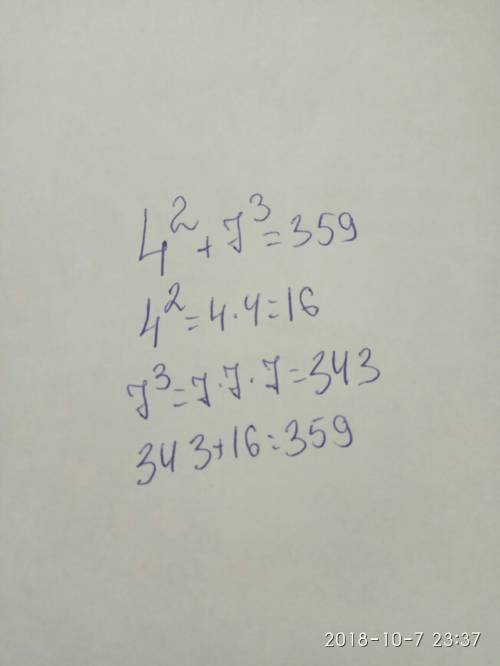 4² + 7³ = 359
4² = 4 · 4 = 16
7³ = 7 · 7 · 7 = 343
343 + 16 = 359
2018-10-7 23:37